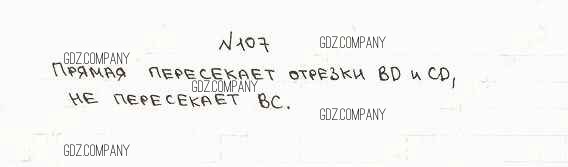 №107
GDZ.COMPANY GDZ.COMPANY
ПРЯМАЯ ПЕРЕСЕКАЕТ ОТРЕЗКИ BD И CD,
GDZ.COMPANY
НЕ ПЕРЕСЕКАЕТ BC.
GDZ.COMPANY
GDZ.COMPANY